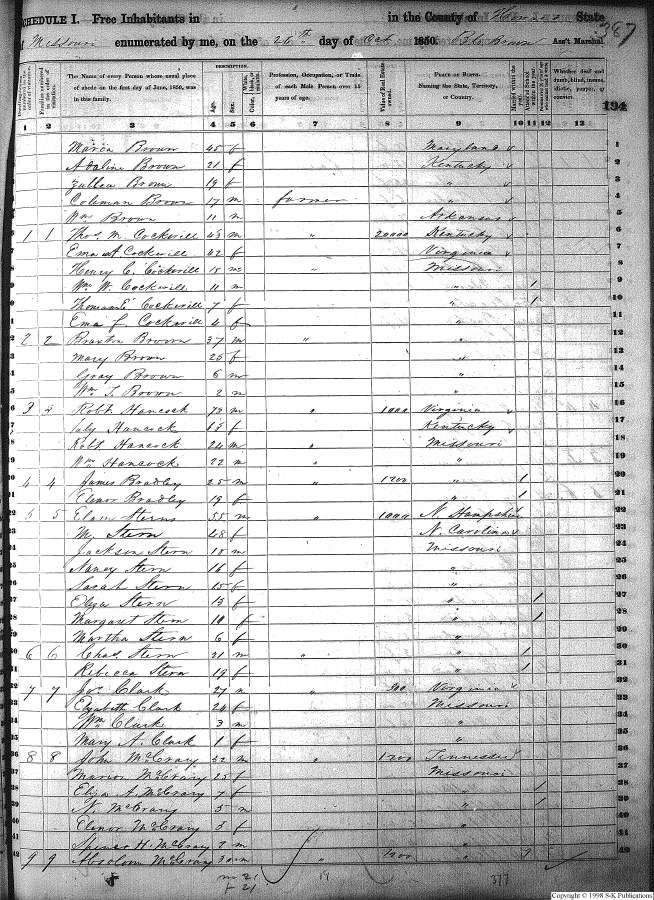 SCHEDULE I. Free Inhabitants in in the County of State 387
Missouri enumerated by me, on the 26th day of Oct 1850. Ass't Marshal.
DESCRIPTION.
The Name of every Person whose usual place of abode on the first day of June, 1850, was in this family.
Age. Sex. Color,
Profession, Occupation, or Trade of each Male Person over 15 years of age.
Value of Real Estate owned.
PLACE OF BIRTH. Naming the State, Territory, or Country.
Whether deaf and dumb, blind, insane, idiotic, pauper, or convict.
194
1 2 3 4 5 6 7 8 9 10 11 12 13
Maria Brown 45 f Maryland 1
Adaline Brown 21 f Kentucky 2
Brown 19 f " 3
Coleman Brown 17 m farmer " 4
Wm Brown 11 m Arkansas 5
1 1 Thos. M. Cockrill 43 m " 20000 Kentucky 6
Cockrill 42 f Virginia 7
Henry C. Cockrill 18 m " Missouri 8
Wm W. Cockrill 11 m " 1 9
Cockrill 7 f " 1 10
Ema f. Cockrill 4 f " 11
2 2 Braxton Brown 37 m " " 12
Mary Brown 25 f " 13
Gray Brown 6 m " 14
Wm T. Brown 2 m " 15
3 3 Robt. Hancock 72 m " 1000 Virginia 16
Hancock f Kentucky 17
Robt. Hancock 24 m " Missouri 18
Wm Hancock 22 m " " 19
4 4 James Bradley 25 m " 1200 " 1 20
Elenor Bradley 19 f " 1 21
5 5 Elam Sterns 55 m " 1000 N. Hampshire 22
M, Stern 48 f N. Carolina 23
Jackson Stern 18 m Missouri 24
Nancy Stern 16 f " 25
Sarah Stern 15 f " 26
Eliza Stern 13 f " 1 27
Margaret Stern 10 f " 1 28
Martha Stern 6 f " 29
6 6 Chas. Stern 21 m " " 1 30
Rebecca Stern 19 f " 1 31
7 7 Jos Clark 27 m " 300 Virginia 32
Elizabeth Clark 24 f Missouri 33
Wm Clark 3 m " 34
Mary A. Clark 1 f " 35
8 8 John McCrary 32 m " 1200 Tennessee 36
Marion McCrary 25 f Missouri 37
Eliza A. McCrary 7 f " 1 38
N. McCrary 5 m " 1 39
Elenor McCrary 3 f " 40
Spencer H. McCrary 2 m " 41
9 9 Absolom McCrary 30 m " 1200 " 1 42
m 21
f 21
19
377
Copyright © 1998 S-K Publications